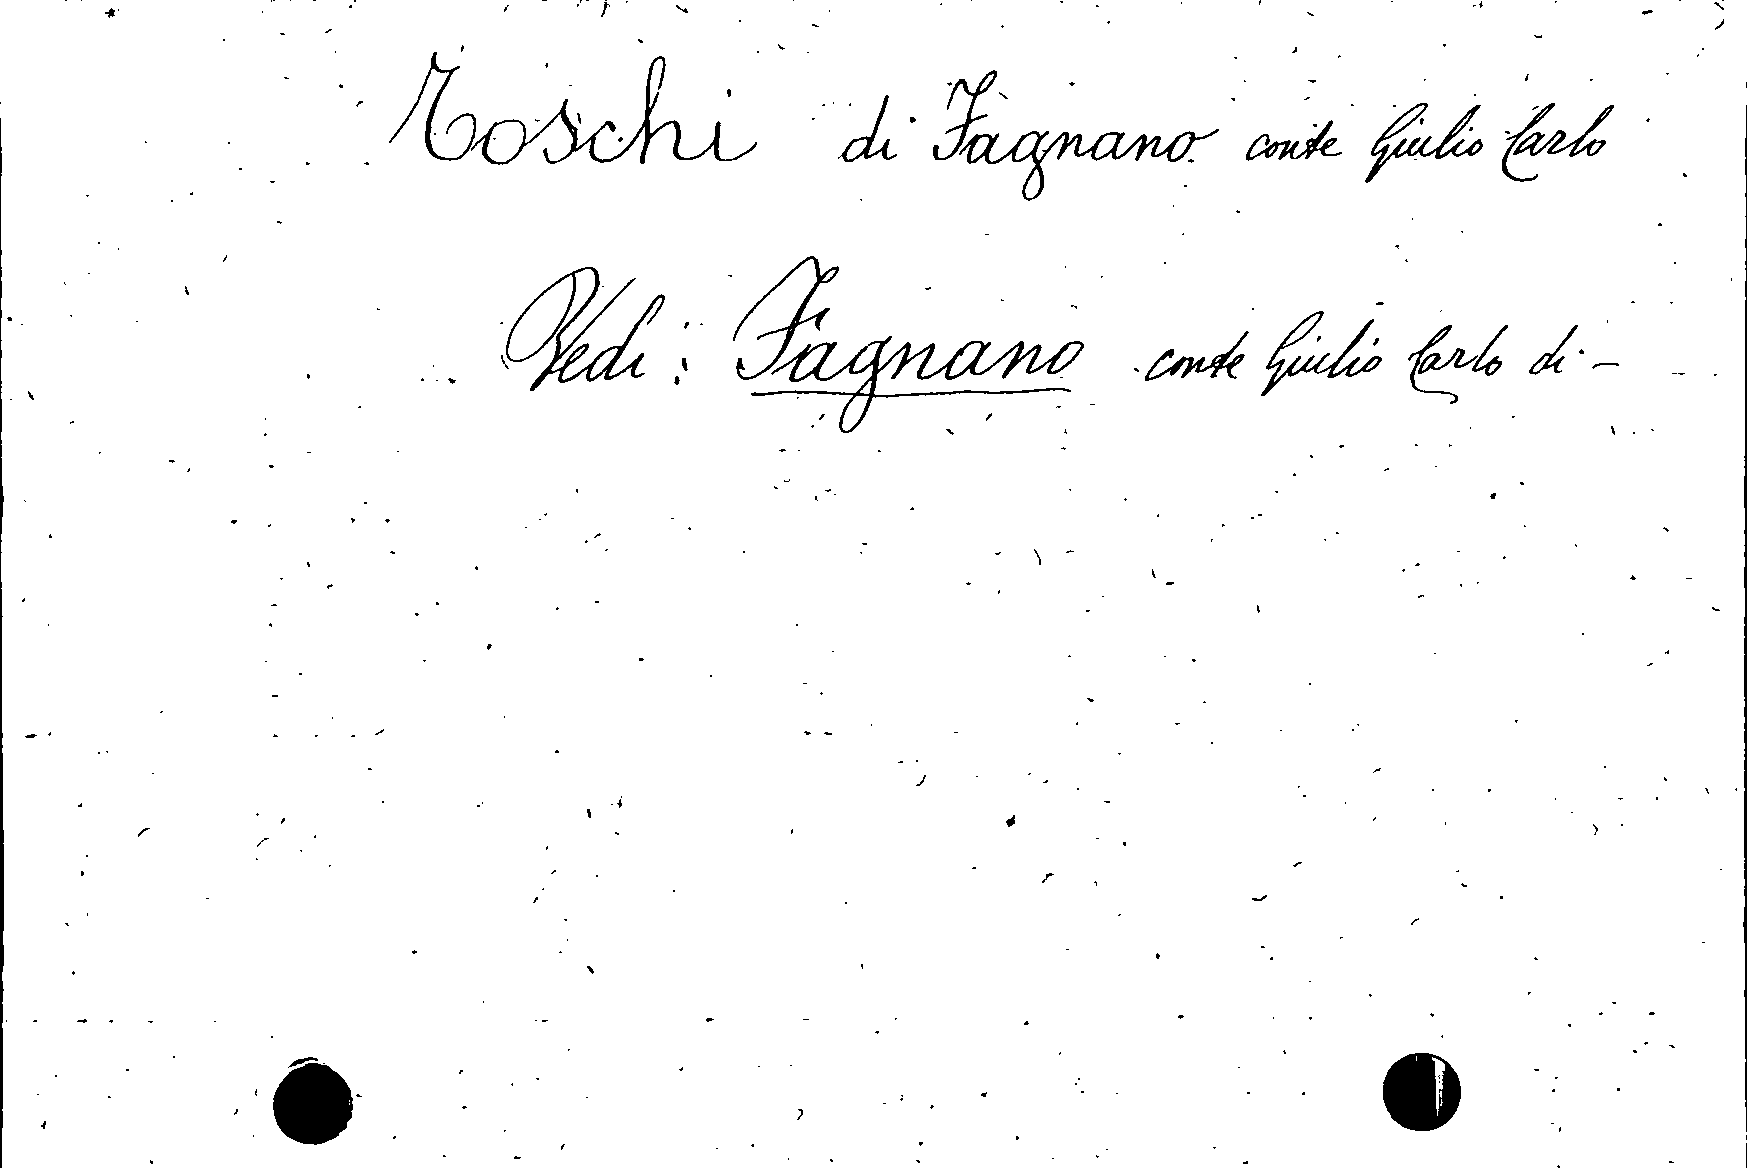 Toschi di Fagnano conte Giulio Carlo
Vedi: Fagnano conte Giulio Carlo di -